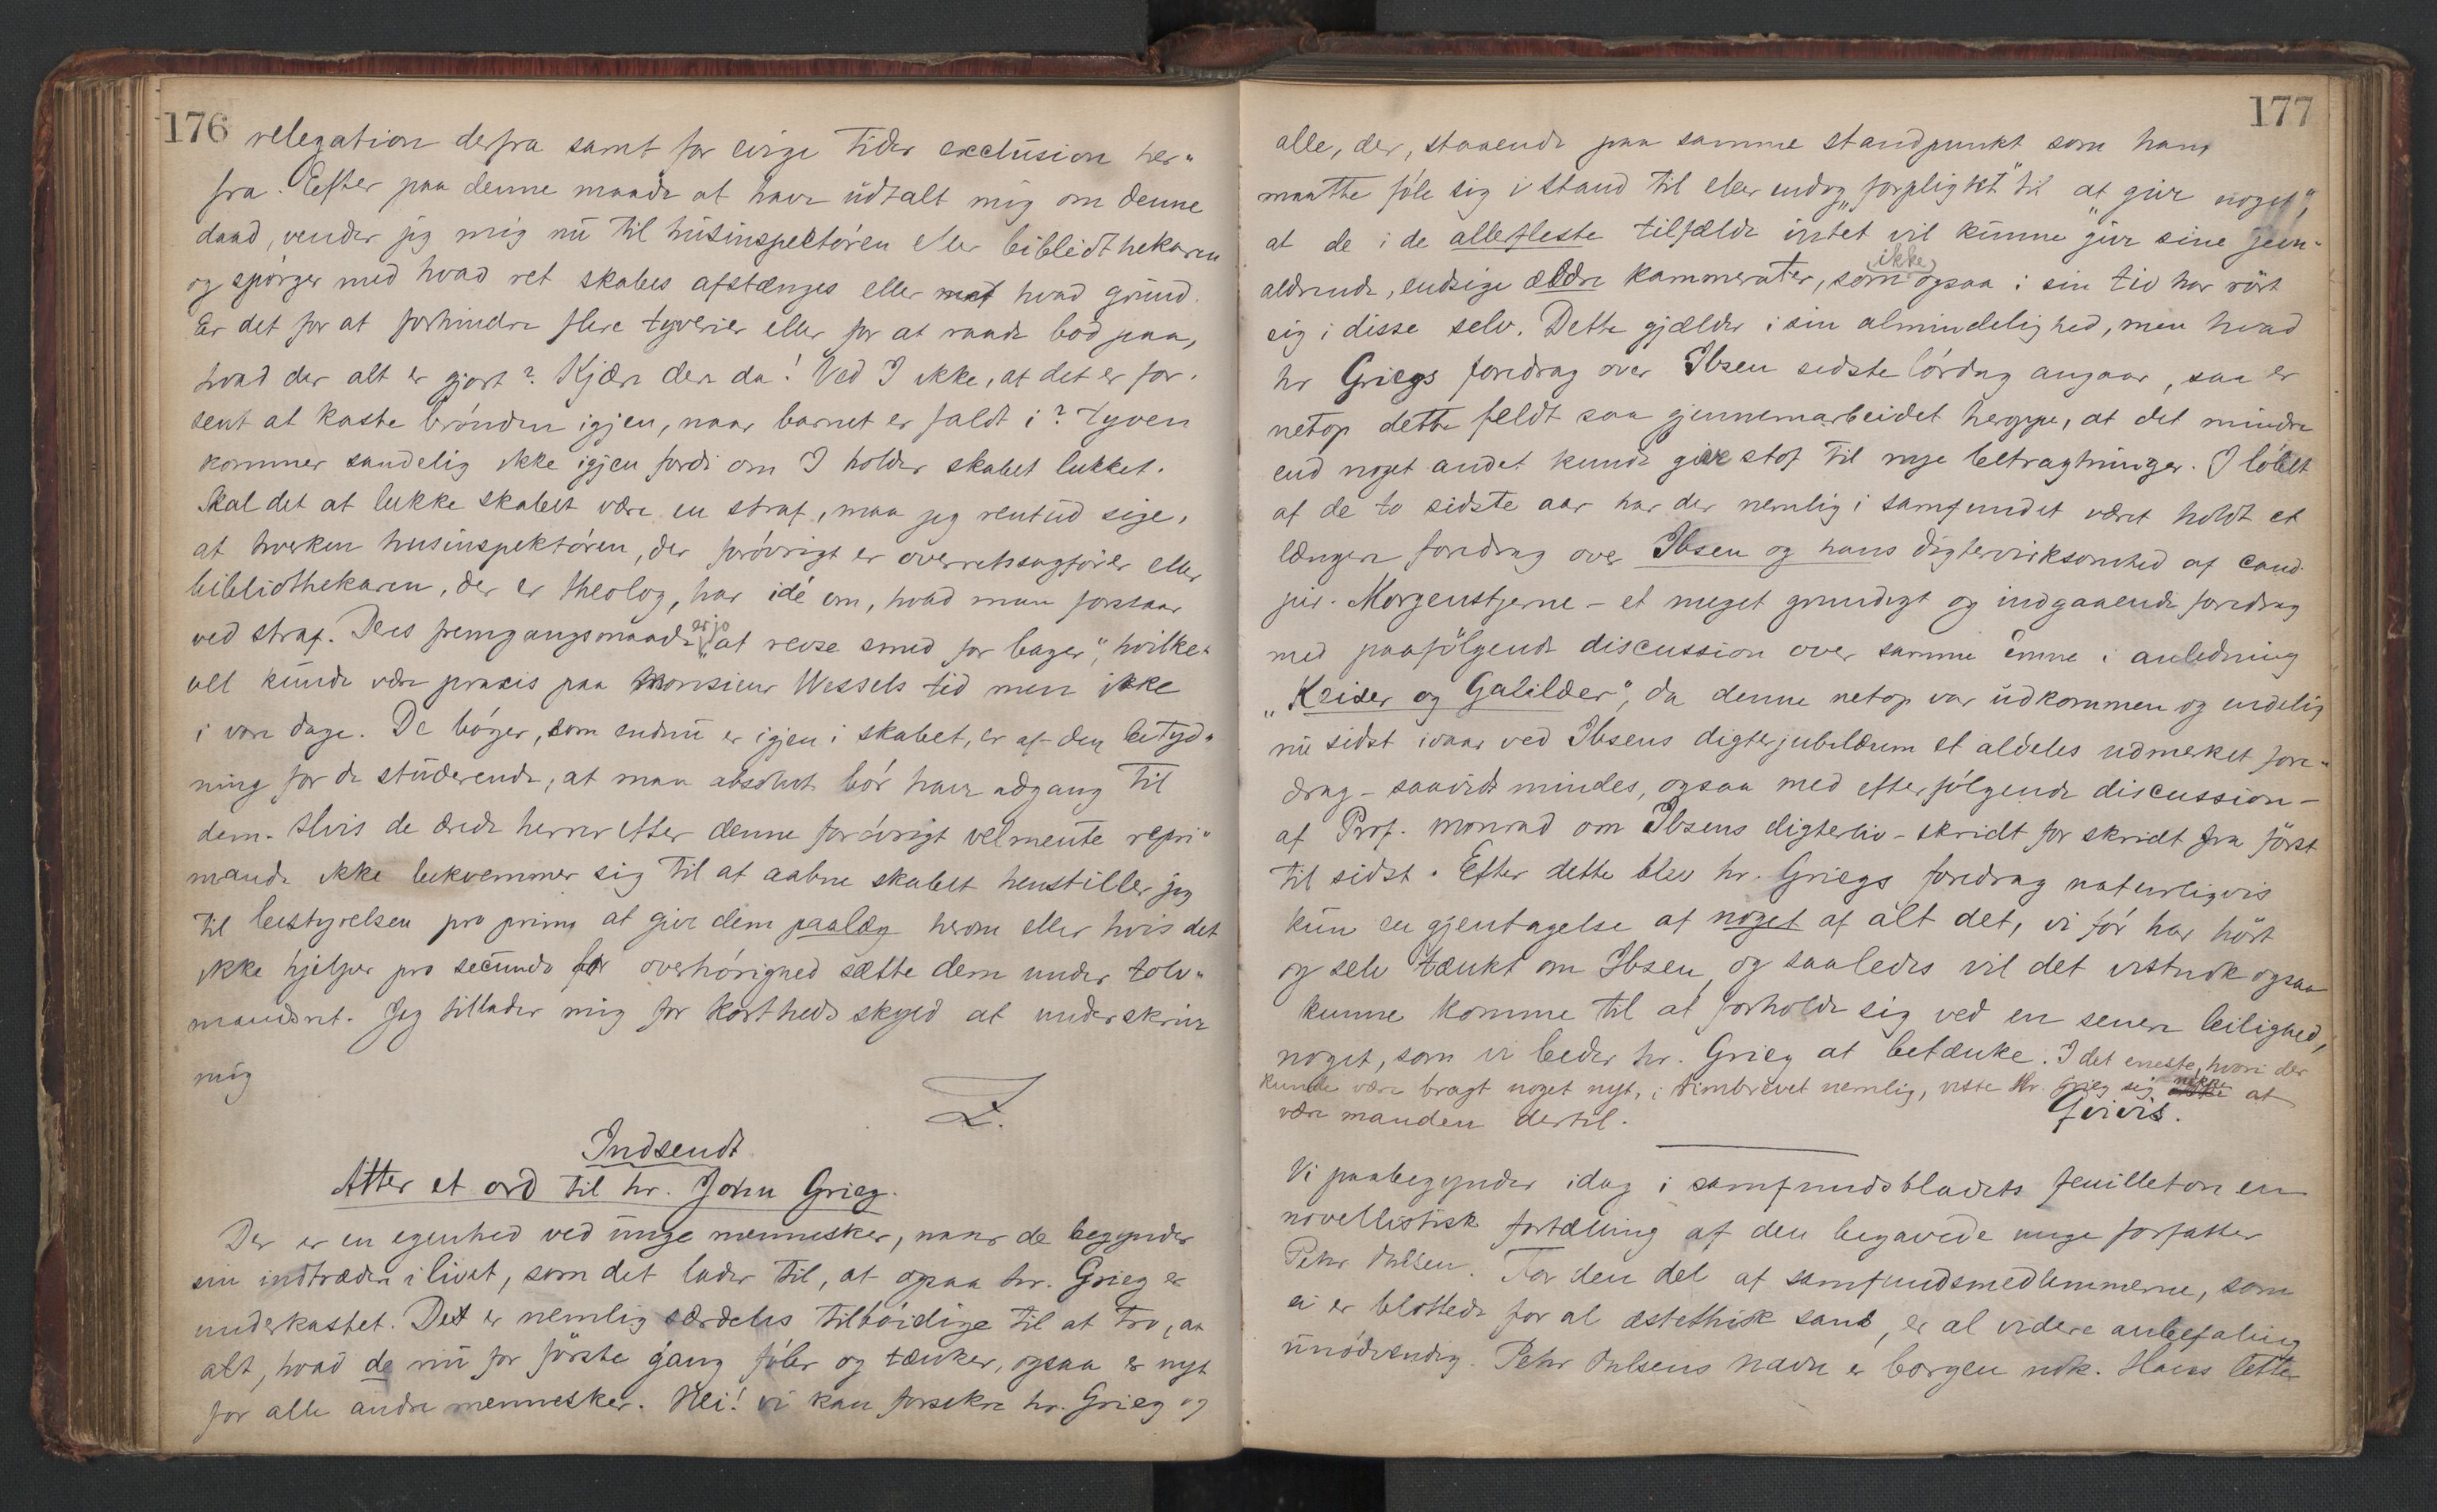 176
relegation derfra samt for evige tider exclusion her„
fra. Eefter paa denne maade at have udtalt mig om denne
daad, vender jeg mig nu til husinspektøren eller bibliothekaren
og spørger med hvad ret skabet afstænges eller med hvad grund.
Er det for at forhindre flere tyverier eller for at raade bod paa,
hvad der alt er gjort? Kjære dere da! Ved I ikke, at det er for„
sent at kaste brønden igjen, naar barnet er faldt i? tyven
kommer sandelig ikke igjen fordi om I holder skabet lukket.
Skal det at lukke skabet være en straf, maa jeg rentud sige,
at hverken husinspektøren, der forøvrigt er overretssagfører eller
bibliothekaren, der er theolog, har idé om, hvad man forstaar
ved straf. Deres fremgangsmaade er jo „at revse smed for bager“, hvilket
vel kunde være praxis paa Monsieur Wessels tid men ikke
i vore dage. De bøger, som endnu er igjen i skabet, er af den betyd„
ning for de studerende, at man absolut bør have adgang til
dem. Hvis de ærede herrer efter denne forøvrigt velmente repri„
mande ikke bekvemmer sig til at aabne skabet henstiller jeg
til bestyrelsen pro primo at give dem paalæg herom eller hvis det
ikke hjelper pro secundo for overhørighed sætte dem under tolv„
mandsret. Jeg tillader mig for kortheds skyld at underskrive
mig
Z.
Indsendt
Atter et ord til hr. John Grieg.
Der er en egenhed ved unge mennesker, naar de begynder
sin indtræden i livet, som det lader til, at ogsaa hr. Grieg er
underkastet. Det er nemlig særdeles tilbøidige til at tro, at
alt, hvad de nu for første gang føler og tænker, ogsaa er nyt
for alle andre mennesker. Nei! vi kan forsikre hr. Grieg og
177
alle, der, staaende paa samme standpunkt som han
maatte føle sig i stand til eller endog „forpligtet“ til „at give noget“,
at de i de allefleste tilfælde intet vil kunne give sine jevn„
aldrende, endsige ældre kammerater, som ikke ogsaa i sin tid har rört
sig i disse selv. Dette gjælder i sin almindelighed, men hvad
hr Griegs foredrag over Ibsen sidste lørdag angaar, saa er
netop dette feldt saa gjennemarbeidet heroppe, at det mindre
end noget andet kunde give stof til nye betragtninger. I løbet
af de to sidste aar har der nemlig i samfundet været holdt et
længere foredrag over Ibsen og hans digtervirksomhed af cand.
jur. Morgenstjerne – et meget grundigt og indgaaende foredrag
med paafølgende discussion over samme emne i anledning
„Keiser og Galilæer“, da denne netop var udkommen og endelig
nu sidst ivaar ved Ibsens digterjubilæum et aldeles udmerket fore„
drag – saavidt mindes, ogsaa med efterfølgende discussion –
af Prof. Monrad om Ibsens digterliv – skridt for skridt fra först
til sidst. Efter dette blev hr. Griegs foredrag naturligvis
kun en gjentagelse af noget af alt det, vi før har hört
og selv tænkt om Ibsen, og saaledes vil det vistnok ogsaa
kunne komme til at forholde sig ved en senere leilighed,
noget, som vi beder hr. Grieg at betænke. I det eneste, hvori der
kunde være bragt noget nyt, i rimbrevet nemlig, viste Hr. Grieg sig nikke at
være manden dertil.
Qvivis.
Vi paabegynder idag i samfundsbladets feuilleton en
novellistisk fortælling af den begavede unge forfatter
Peter Oulsen. For den del af samfundsmedlemmerne, som
ei er blottede for al æstethisk sans, er al videre anbefaling
unødvendig. Peter Oulsens navn er borgen nok. Hans lette